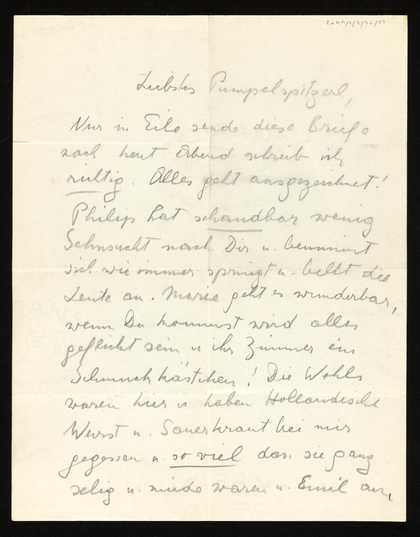 Liebstes Pumpelspitzerl,
Nur in Eile sende diese Briefe
nach heut Abend schreib ich
richtig. Alles geht ausgezeichnet!
Philip hat schandbar wenig
Sehnsucht nach Dir u. benimmt
sich wie immer springt u. bellt die
Leute an. Marie geht es wunderbar,
wenn Du kommst wird alles
geflickt sein u ihr Zimmer ein
Schmuckkästchen! Die Wohls
waren hier u haben Holländische
Wurst u. Sauerkraut bei mir
gegessen u. so viel dass sie ganz
selig u. müde waren u. Emil